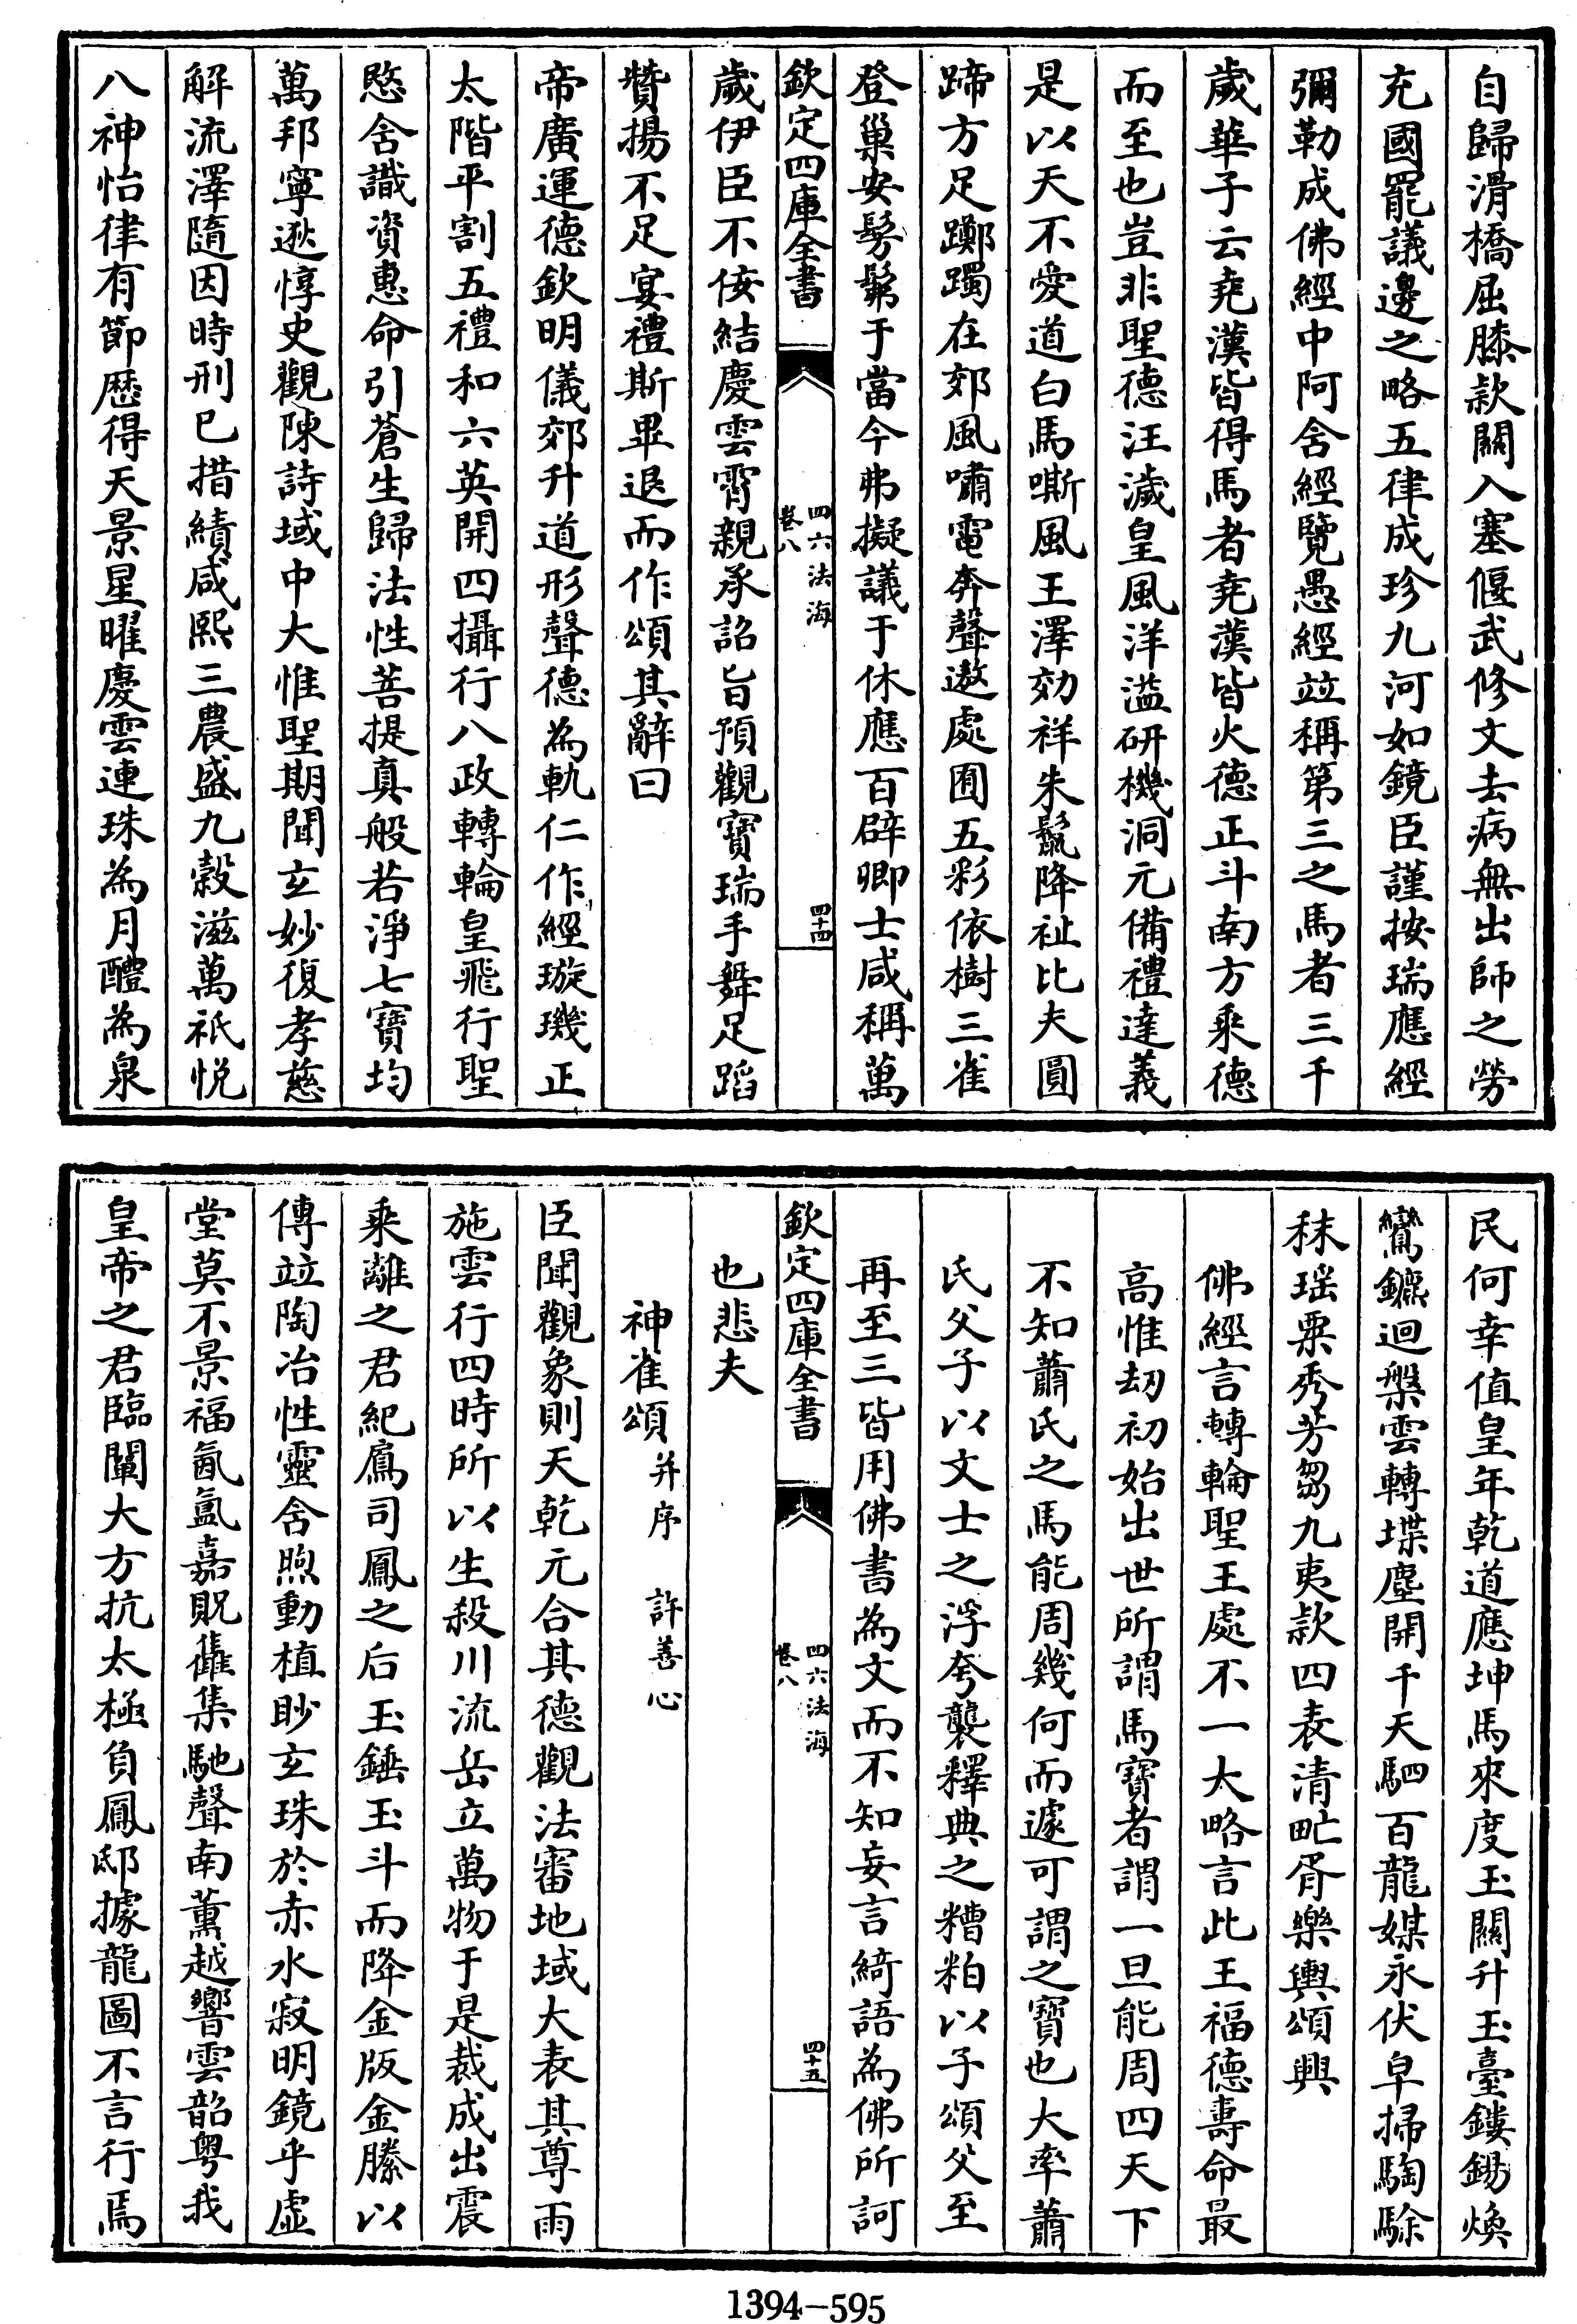 自歸滑橋屈膝款關入塞偃武修文去病無出師之勞
充國罷議邊之略五律成珍九河如鏡臣謹按瑞應經
彌勒成佛經中阿含經賢愚經竝稱第三之馬者三千
歲華子云堯漢皆得馬者堯漢皆火德正斗南方乘德
而至也豈非聖德汪濊皇風洋溢研機洞元備禮達義
是以天不愛道白馬嘶風王澤効祥朱鬣降祉比夫圓
蹄方足躑躅在郊風嘯電奔聲遨處囿五彩依樹三雀
登巢安髣髴于當今弗擬議于休應百辟卿士咸稱萬
欽定四庫全書
四六法海
卷八
四十四
歲伊臣不佞結慶雲霄親承詔旨預觀寶瑞手舞足蹈
贊揚不足宴禮斯畢退而作頌其辭曰
帝廣運德欽明儀郊升道形聲德為軌仁作經璇璣正
太階平割五禮和六英開四攝行八政轉輪皇飛行聖
愍含識資惠命引蒼生歸法性菩提真般若淨七寶均
萬邦寧逖惇史觀陳詩域中大惟聖期闡玄妙復孝慈
解流澤隨因時刑已措績咸熙三農盛九穀滋萬祇悅
八神怡律有節歷得天景星曜慶雲連珠為月醴為泉
民何幸值皇年乾道應坤馬來度玉關升玉臺鏤錫煥
鸞鑣迴槃雲轉堞塵開千天駟百龍媒永伏皁掃騊駼
秣瑶粟秀芳芻九夷款四表清甿胥樂輿頌興
佛經言轉輪聖王處不一大略言此王福德壽命最
高惟劫初始出世所謂馬寶者謂一旦能周四天下
不知蕭氏之馬能周幾何而遽可謂之寶也大率蕭
氏父子以文士之浮夸襲釋典之糟粕以子頌父至
再至三皆用佛書為文而不知妄言綺語為佛所訶
欽定四庫全書
四六法海
卷八
四十五
也悲夫
神雀頌并序　許善心
臣聞觀象則天乾元合其德觀法審地域大表其尊雨
施雲行四時所以生殺川流岳立萬物于是裁成出震
乘離之君紀鳸司鳳之后玉錘玉斗而降金版金縢以
傳竝陶冶性靈含煦動植眇玄珠於赤水寂明鏡乎虛
堂莫不景福氤氳嘉貺雥集馳聲南薰越響雲韶粤我
皇帝之君臨闡大方抗太極負鳳邸據龍圖不言行焉
1394-595